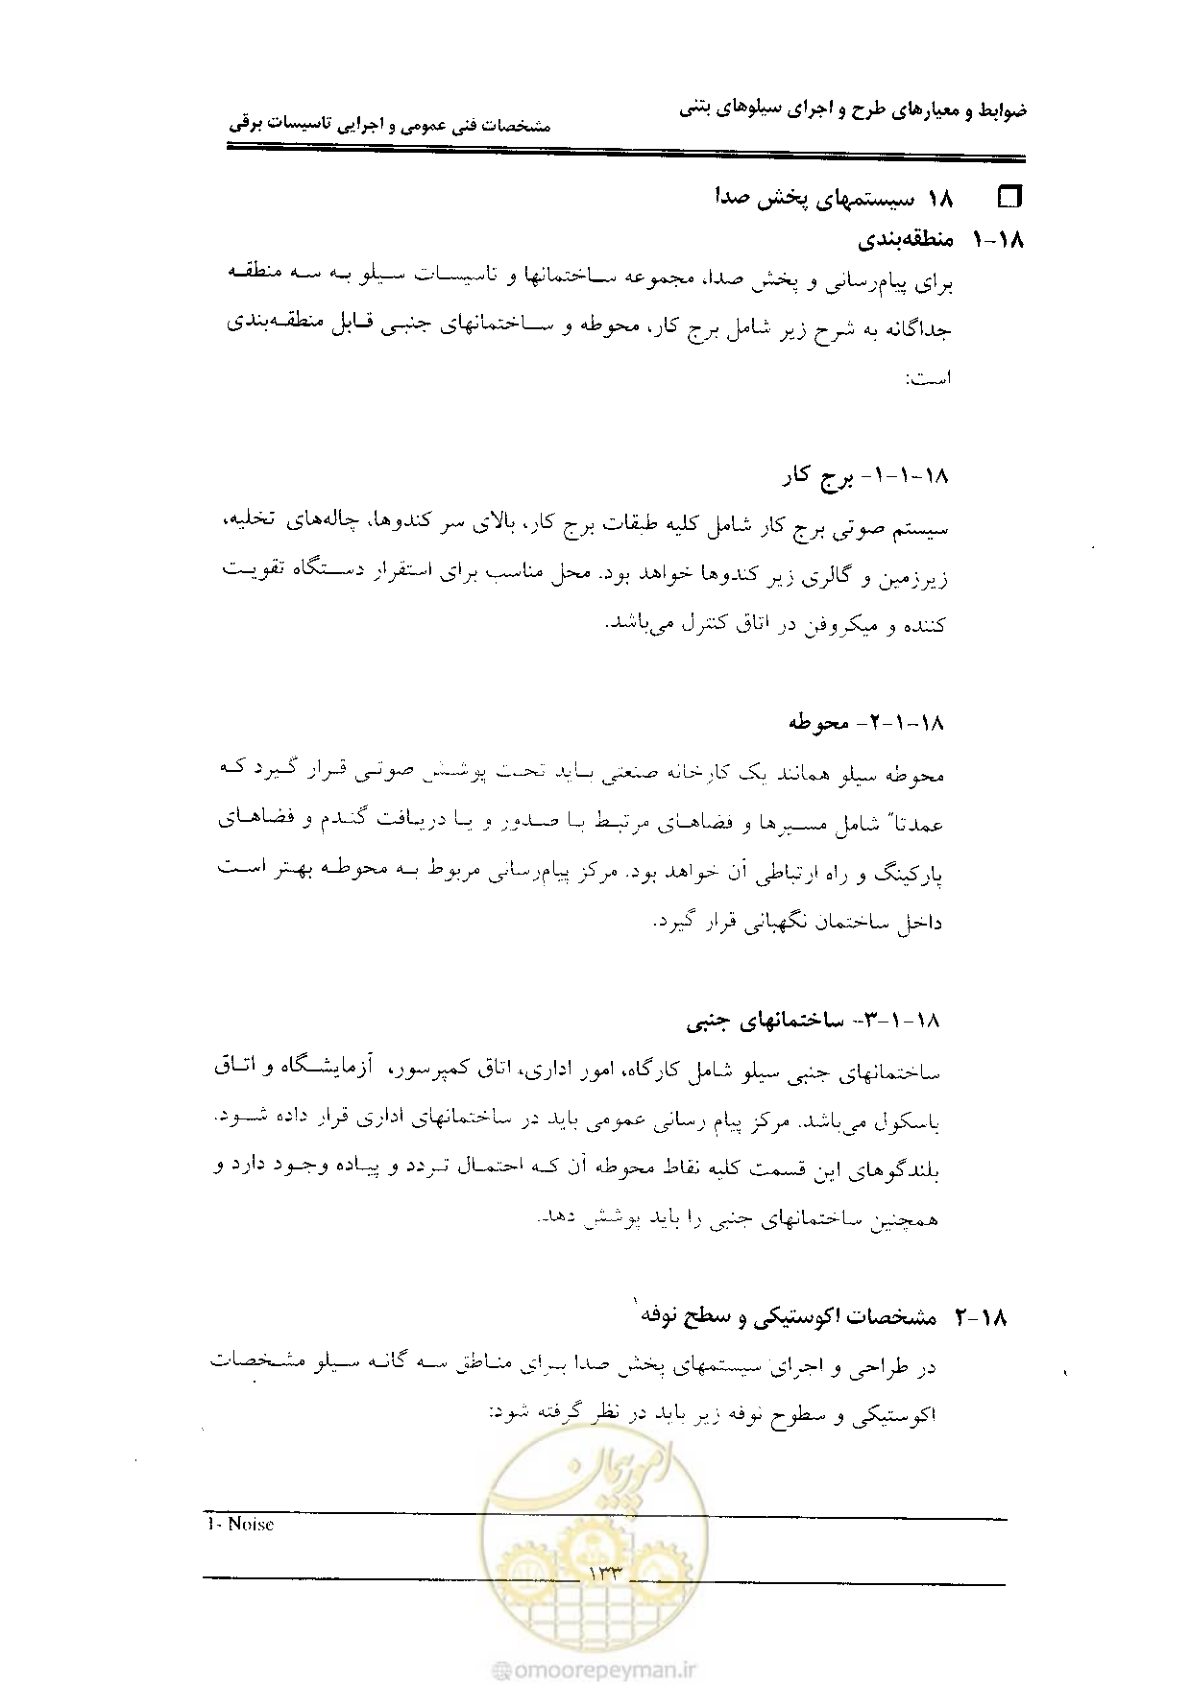 ضوابط و معیارهای طرح و اجرای سیلوهای بتنی
مشخصات فنی عمومی و اجرایی تاسیسات برقی
۱۸ سیستمهای پخش صدا
۱۸-۱ منطقه‌بندی
برای پیام‌رسانی و پخش صدا، مجموعه ساختمانها و تاسیسات سیلو به سه منطقه
جداگانه به شرح زیر شامل برج کار، محوطه و ساختمانهای جنبی قابل منطقه‌بندی
است:
۱۸-۱-۱- برج کار
سیستم صوتی برج کار شامل کلیه طبقات برج کار، بالای سر کندوها، چاله‌های تخلیه،
زیرزمین و گالری زیر کندوها خواهد بود. محل مناسب برای استقرار دستگاه تقویت
کننده و میکروفن در اتاق کنترل می‌باشد.
۱۸-۱-۲- محوطه
محوطه سیلو همانند یک کارخانه صنعتی باید تحت پوشش صوتی قرار گیرد که
عمدتا" شامل مسیرها و فضاهای مرتبط با صدور و یا دریافت گندم و فضاهای
پارکینگ و راه ارتباطی آن خواهد بود. مرکز پیام‌رسانی مربوط به محوطه بهتر است
داخل ساختمان نگهبانی قرار گیرد.
۱۸-۱-۳- ساختمانهای جنبی
ساختمانهای جنبی سیلو شامل کارگاه، امور اداری، اتاق کمپرسور، آزمایشگاه و اتاق
باسکول می‌باشد. مرکز پیام رسانی عمومی باید در ساختمانهای اداری قرار داده شود.
بلندگوهای این قسمت کلیه نقاط محوطه آن که احتمال تردد و پیاده وجود دارد و
همچنین ساختمانهای جنبی را باید پوشش دهد.
۱۸-۲ مشخصات اکوستیکی و سطح نوفه۱
در طراحی و اجرای سیستمهای پخش صدا برای مناطق سه گانه سیلو مشخصات
اکوستیکی و سطوح نوفه زیر باید در نظر گرفته شود:
امور پیمان
1- Noise
۱۳۳
@omoorepeyman.ir